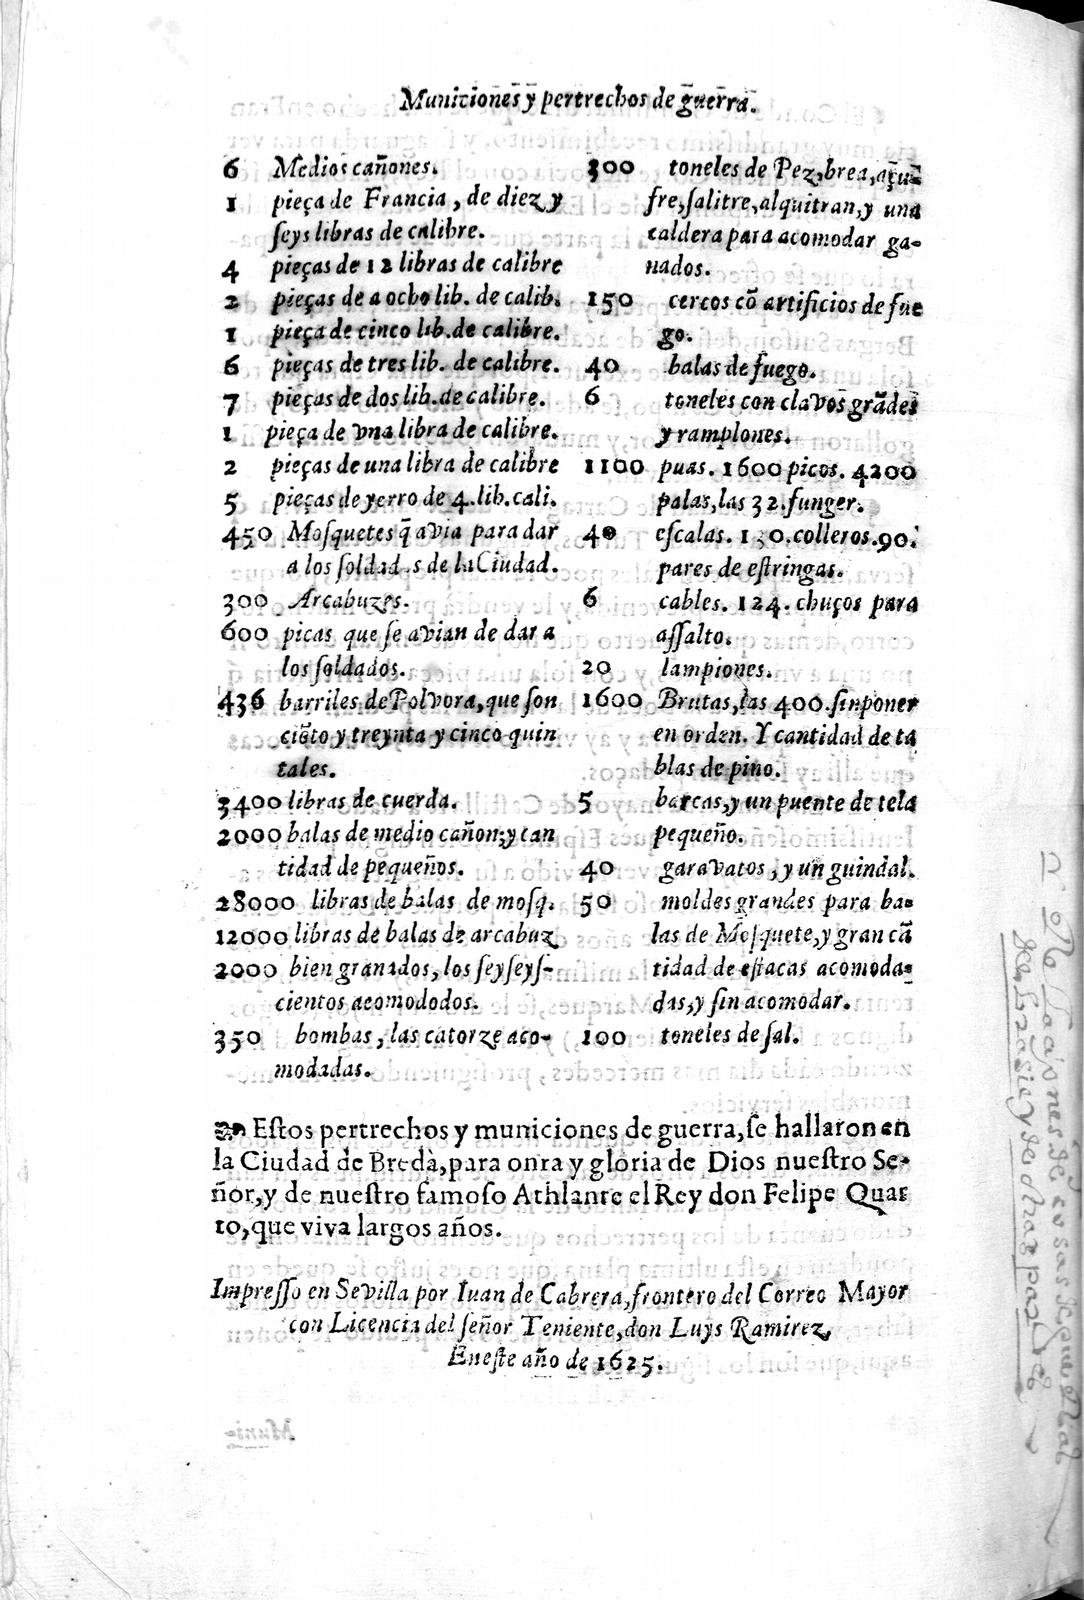 Municiones y pertrechos de guerra.
6 Medios cañones.
1 pieça de Francia, de diez y
ſeys libras de calibre.
4 pieças de 12 libras de calibre
2 pieças de a ocho lib. de calib.
1 pieça de cinco lib. de calibre.
6 pieças de tres lib. de calibre.
7 pieças de dos lib. de calibre.
1 pieça de vna libra de calibre.
2 pieças de una libra de calibre
5 pieças de yerro de 4. lib. cali.
450 Moſquetes q̃ avia para dar
a los ſoldad s de la Ciudad.
300 Arcabuzes.
600 picas que ſe avian de dar a
los ſoldados.
436 barriles de Polvora, que ſon
ciẽto y treynta y cinco quin
tales.
3400 libras de cuerda.
2000 balas de medio cañon; y can
tidad de pequeños.
28000 libras de balas de moſq.
12000 libras de balas de arcabuz
2000 bien granados, los ſeyſeyſ-
cientos acomododos.
350 bombas, las catorze aco-
modadas.
300 toneles de Pez, brea, açu-
fre, ſalitre, alquitran, y una
caldera para acomodar ga-
nados.
150 cercos cõ artificios de fue
go.
40 balas de fuego.
6 toneles con clavos grãdes
y ramplones.
1100 puas. 1600 picos. 4200
palas, las 32. funger.
40 eſcalas. 130. colleros. 90.
pares de eſtringas.
6 cables. 124. chuços para
aſſalto.
20 lampiones.
1600 Brutas, las 400. ſin poner
en orden. Y cantidad de ta
blas de pino.
5 barcas, y un puente de tela
pequeño.
40 garavatos, y un guindal.
50 moldes grandes para ba-
las de Moſquete, y gran cã
tidad de eſtacas acomoda-
das, y ſin acomodar.
100 toneles de ſal.
Eſtos pertrechos y municiones de guerra, ſe hallaron en
la Ciudad de Bredà, para onra y gloria de Dios nueſtro Se-
ñor, y de nueſtro famoſo Athlante el Rey don Felipe Quar
to, que viva largos años.
Impreſſo en Sevilla por Iuan de Cabrera, frontero del Correo Mayor
con Licencia del ſeñor Teniente, don Luys Ramirez,
En eſte año de 1625.